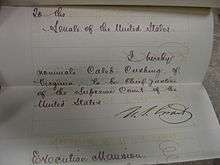 To the
Senate of the United States.
I hereby
nominate Caleb Cushing of
Virginia, to be Chief Justice
of the Supreme Court of the
United States
U. S. Grant
Executive Mansion,